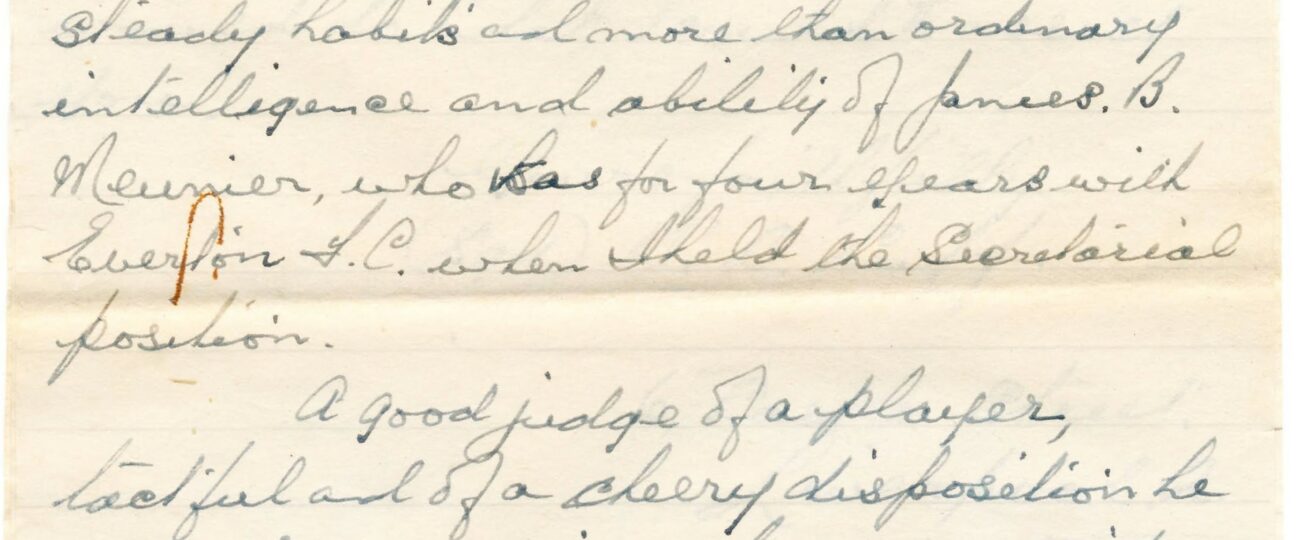 steady habits and more than ordinary
intelligence and ability of James. B.
Meunier, who was for four years with
Everton F.C. when I held the Secretarial
position.
A good judge of a player,
tactful and of a cheery disposition he